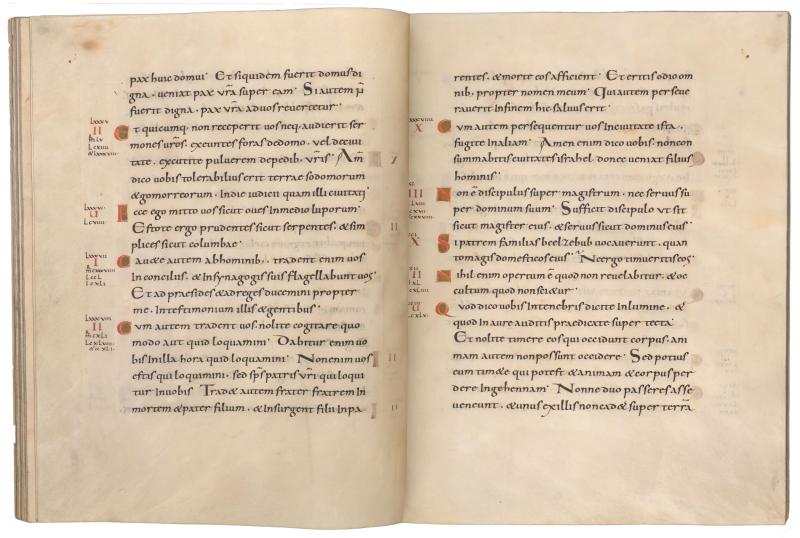 pax huic domui· Et siquidem fuerit domus di
gna, ueniat pax vr̄a super eam· Si autem n̄
fuerit digna, pax vr̄a ad uos reuertetur·
Et quicumq; non receperit uos neq; audierit ser
mones uros, exeuntes foras dedomo, vel deciui
tate, excutite puluerem depedib; vr̄is· Am̄
dico uobis tolerabilius erit terrae sodomorum
& gomorreorum, Indie iudicii quam illi ciuitati·
Ecce ego mitto uos sicut oues Inmedio luporum·
Estote ergo prudentes sicut serpentes, & sim
plices sicut columbae·
Cau&e autem abhominib; tradent enim uos
In conciliis, & Insynagogis suis flagellabunt uos·
Et ad praesides & adreges ducemini propter
me, Intestimonium illis & gentibus·
Cum autem tradent uos, nolite cogitare quo
modo aut quid loquamini· Dabitur enim uo
bis Inilla hora quid loquamini· Non enim uos
estis qui loquimini, sed sp̄s patris vr̄i qui loqui
tur Inuobis· Trad& autem frater fratrem In
mortem & pater filium, & Insurgent filii Inpa
II
U
I
II
rentes, & morte eos afficient· Et eritis odio om
nib; propter nomen meum· Qui autem perseue
rauerit Infinem hic saluus erit·
Cum autem persequentur uos Inciuitate ista,
fugite Inaliam· Amen enim dico uobis, non con
summabitis ciuitates israhel, donec ueniat filius
hominis·
Non ē discipulus super magistrum, nec seruus su
per dominum suum· Sufficit discipulo ut sit
sicut magister eius, & seruus sicut dominus eius·
Si patrem familias beelzebub uocauerunt, quan
tomagis domesticos eius· Ne ergo timueritis eos·
Nihil enim opertum ē quod non reuelabitur, & oc
cultum quod non sci&ur·
Quod dico uobis Intenebris dicite Inlumine, &
quod In aure auditis praedicate super tecta·
Et nolite timere eos qui occidunt corpus, ani
mam autem non possunt occidere· Sed potius
eum tim&e qui potest & animam & corpus per
dere Ingehennam· Nonne duo passeres asse
ueneunt, & unus ex illis non cad& super terrā
X
III
X
II
U